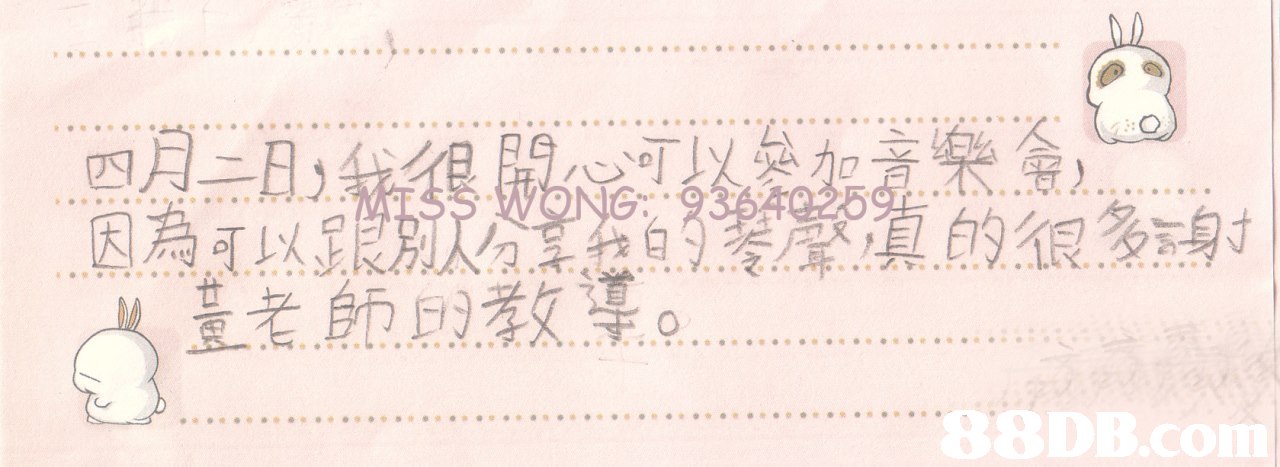 四月二日，我很開心可以參加音樂會，
MISS WONG: 93640259
因為可以跟別人分享我的琴聲，真的很多謝
黃老師的教導。
88DB.com